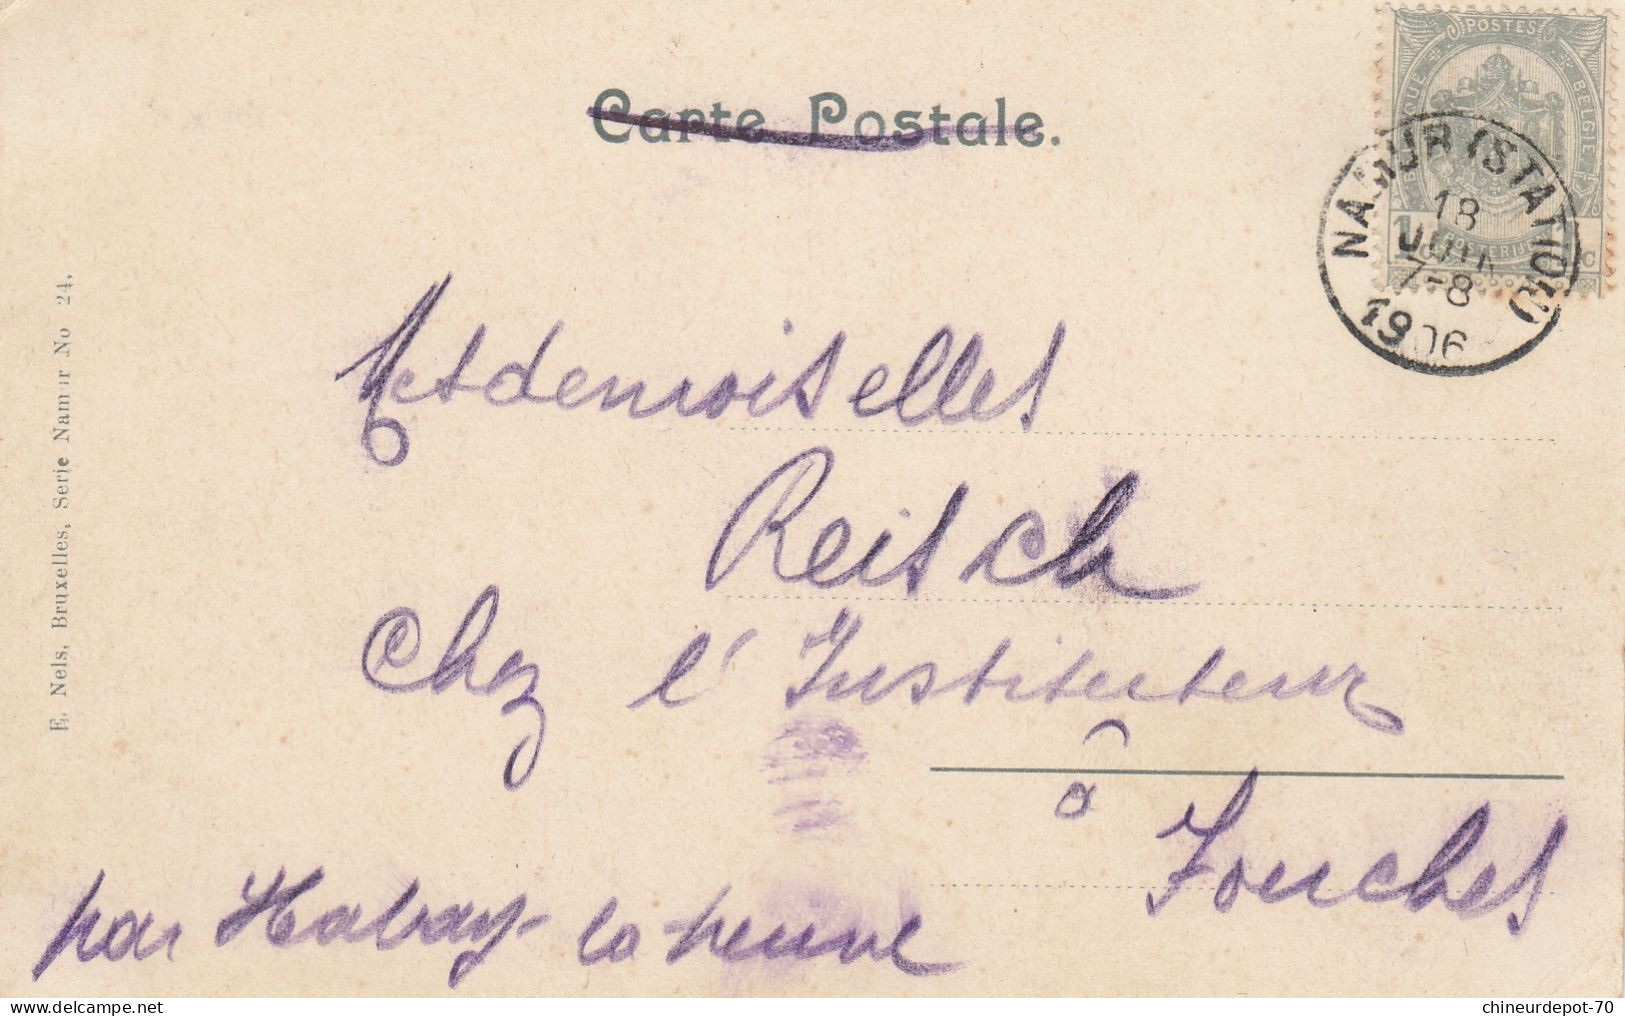 Carte Postale.
POSTES
BELGIQUE BELGIE
POSTERIJEN
1 1c
NAMUR (STATION)
18
JUIN
7-8
1906
E. Nels, Bruxelles, Serie Namur No 24.
Mesdemoiselles
Reisch
Chez l'Instituteur
à
Fouches
par Habay-la-neuve
chineurdepot-70